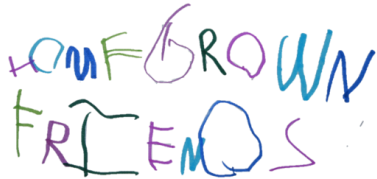 HOMEGROWN
FRIENDS